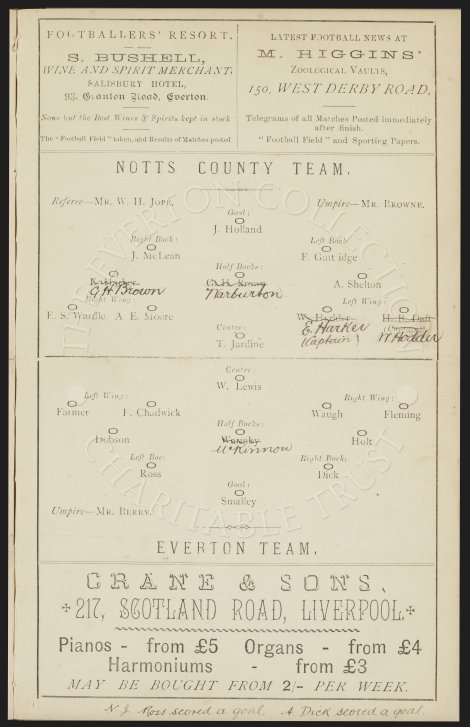 FOOTBALLERS' RESORT.
S. BUSHELL,
WINE AND SPIRIT MERCHANT,
SALISBURY HOTEL,
93, Granton Road, Everton.
None but the Best Wines & Spirits kept in stock
The "Football Field" taken, and Results of Matches posted
LATEST FOOTBALL NEWS AT
M. HIGGINS'
ZOOLOGICAL VAULTS,
150, WEST DERBY ROAD,
Telegrams of all Matches Posted immediately
after finish.
"Football Field" and Sporting Papers.
NOTTS COUNTY TEAM.
Referee—MR. W. H. JOPE.
Umpire—MR. BROWNE.
Goal:
J. Holland
Right Back:
J. McLean
Left Back
F. Gutt idge
Half Backs:
G H Brown
Warburton
A. Shelton
Right Wing:
Left Wing:
F. S. Wardle A. E Moore
W. Hodder
H. B. Daft
E. Harker
(Captain)
W Hodder
Centre:
T. Jardine
Centre:
W. Lewis
Left Wing:
Right Wing:
Farmer
F. Chadwick
Waugh
Fleming
Half Backs:
Dobson
McKinnon
Holt
Left Bac:
Ross
Right Back:
Dick
Goal:
Smalley
Umpire—MR. BERRY.
EVERTON TEAM.
CRANE & SONS,
217, SCOTLAND ROAD, LIVERPOOL.
Pianos - from £5 Organs - from £4
Harmoniums - from £3
MAY BE BOUGHT FROM 2/- PER WEEK.
N J Ross scored a goal. A Dick scored a goal.
THE EVERTON COLLECTION
CHARITABLE TRUST